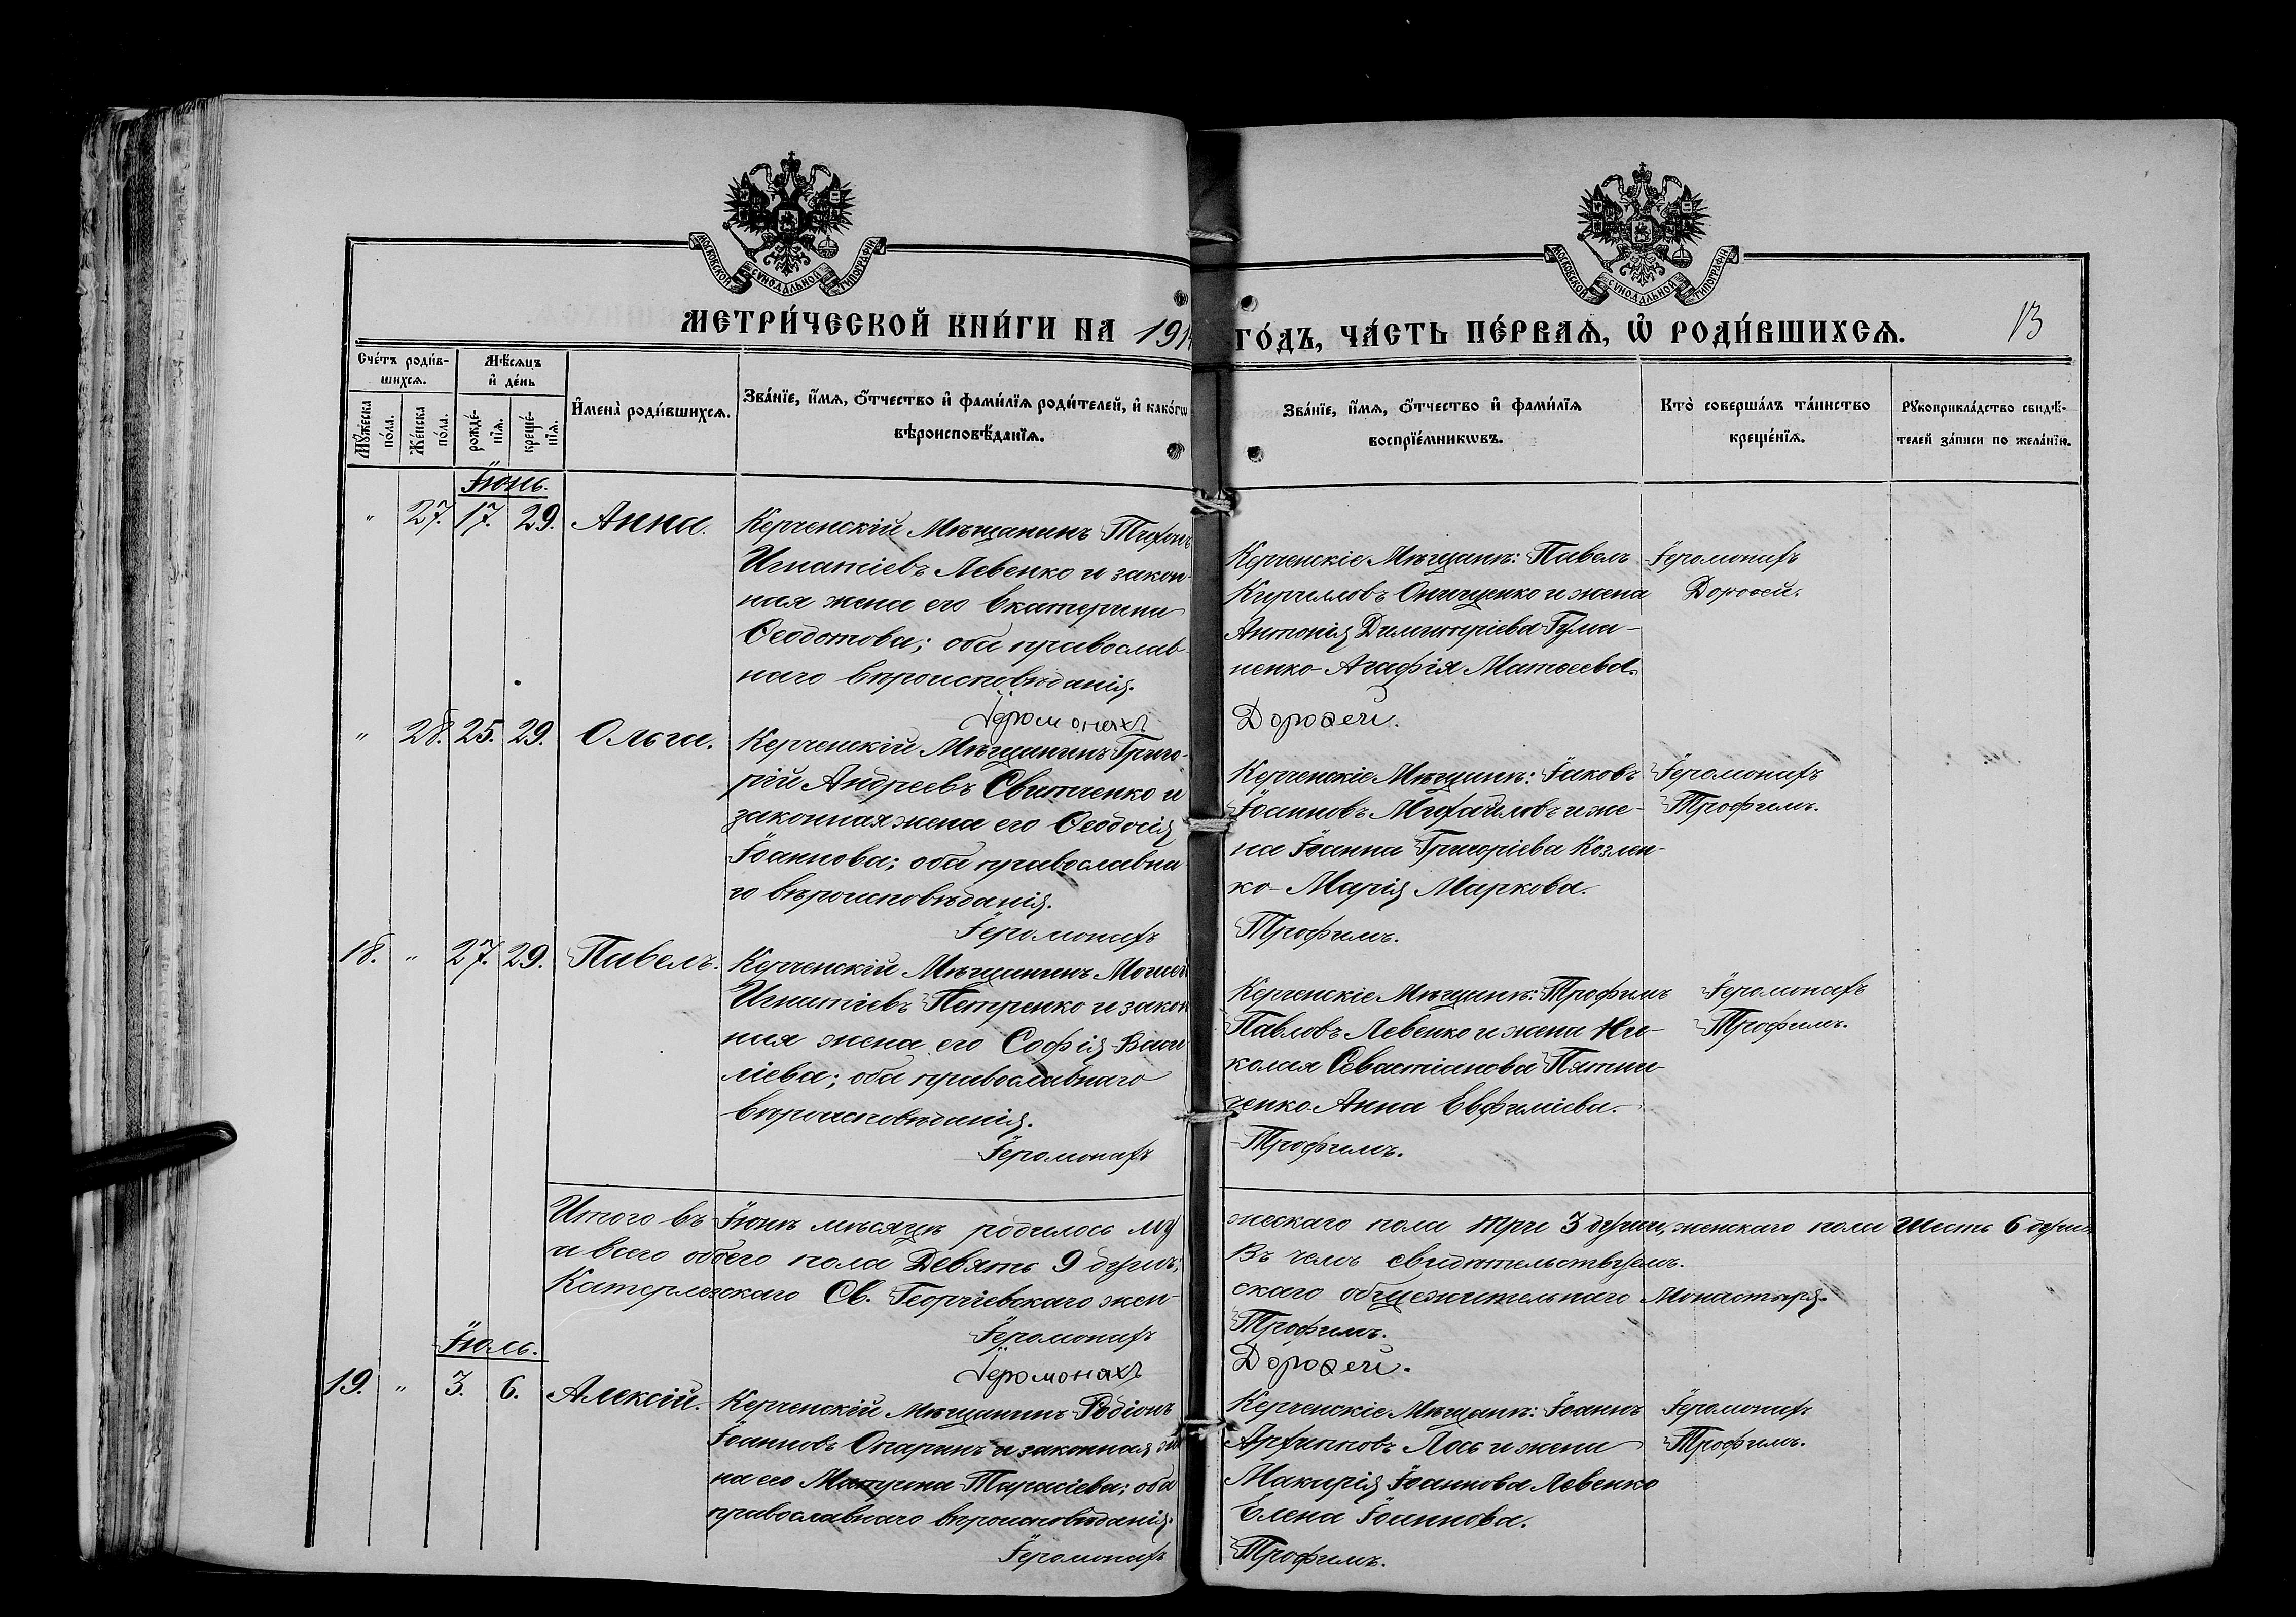 МОСКОВСКОЙ СѴНОДАЛЬНОЙ ТИПОГРАФІИ
МОСКОВСКОЙ СѴНОДАЛЬНОЙ ТИПОГРАФІИ
МЕТРИ́ЧЕСКОЙ КНИ́ГИ НА 191
ГО́ДЪ, ЧА́СТЬ ПЕ́РВАѦ, Ѡ҆ РОДИ́ВШИХСѦ.
13
Сче́тъ роди́в-
шихсѧ.
Мѣ́сѧцъ
и҆ де́нь
Мꙋ́жеска
по́ла.
Же́нска
по́ла.
рожде́-
нїѧ.
креще́-
нїѧ.
И҆мена̀ роди́вшихсѧ.
Зва́нїе, и҆́мѧ, ѻ҆́тчество и҆ фами́лїѧ роди́телей, и҆ како́гѡ
вѣроисповѣ́данїѧ.
Зва́нїе, и҆́мѧ, ѻ҆́тчество и҆ фами́лїѧ
воспрїе́мникѡвъ.
Кто̀ соверша́лъ та́инство
креще́нїѧ.
Рꙋкоприкла́дство свидѣ́-
телей за́писи по жела́нїю.
Іюнь.
" 27. 17. 29. Анна.
Керченскій Мѣщанинъ Тихонъ
Игнатіевъ Левенко и закон-
ная жена его Екатерина
Ѳеодотова; оба православ-
наго вѣроисповѣданія.
Іеромонахъ
Керченскіе Мѣщане: Павелъ
Кирилловъ Онищенко и жена
Антонія Димитріева Гума-
ненко Агафія Матѳеева.
Дороѳей.
Іеромонахъ
Дороѳей.
" 28. 25. 29. Ольга.
Керченскій Мѣщанинъ Григо-
рій Андреевъ Свитченко и
законная жена его Ѳеодосія
Іоаннова; оба православна
го вѣроисповѣданія.
Іеромонахъ
Керченскіе Мѣщане: Іаковъ
Іоанновъ Михайловъ и же-
на Іоанна Григоріева Козлен-
ко Марія Маркова.
Трофимъ.
Іеромонахъ
Трофимъ.
18. " 27. 29. Павелъ.
Керченскій Мѣщанинъ Моисей
Игнатіевъ Петренко и закон
ная жена его Софія Васи
ліева; оба православнаго
вѣроисповѣданія.
Іеромонахъ
Керченскіе Мѣщане: Трофимъ
Павловъ Левенко и жена Ни-
колая Севастіанова Пятни-
ченко Анна Евфиміева.
Трофимъ.
Іеромонахъ
Трофимъ.
Итого въ Іюнѣ мѣсяцѣ родилось му
жескаго пола три 3 души, женскаго пола шесть 6 душъ
а всего обоего пола Девять 9 душъ;
Въ чемъ свидѣтельствуемъ.
Катерлезскаго Св. Георгіевскаго жен-
скаго общежительнаго Монастыря.
Іеромонахъ
Трофимъ.
Іеромонахъ
Дороѳей.
Іюль.
19. " 3. 6. Алексій.
Керченскій Мѣщанинъ Родіонъ
Іоанновъ Опаринъ и законная же
на его Матрона Тарасіева; оба
православнаго вѣроисповѣданія.
Іеромонахъ
Керченскіе Мѣщане: Іоаннъ
Архипповъ Лось и жена
Макарія Іоаннова Левенко
Елена Іоаннова.
Трофимъ.
Іеромонахъ
Трофимъ.